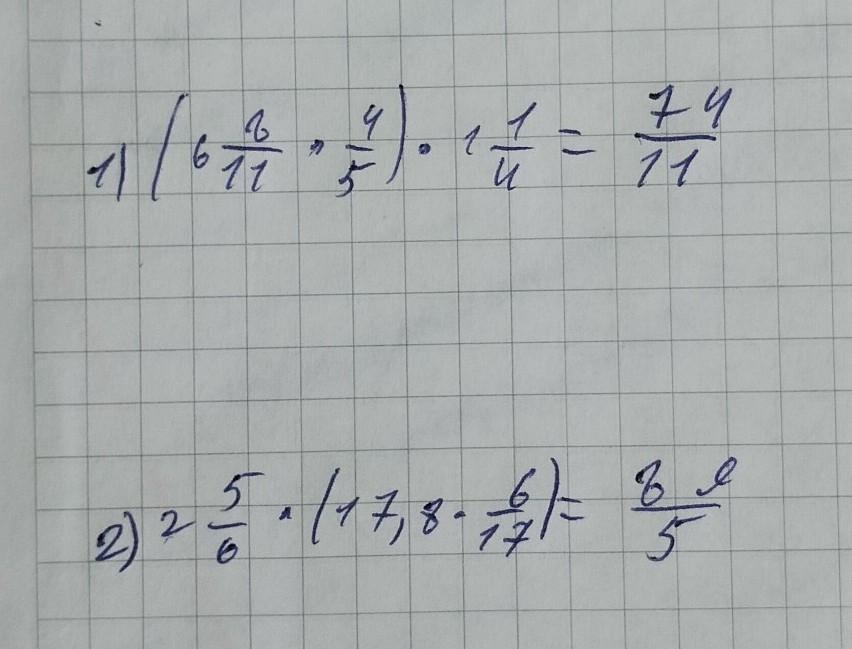 1) (6 8/11 · 4/5) · 1 1/4 = 74/11
2) 2 5/6 · (17,8 · 6/17) = 89/5